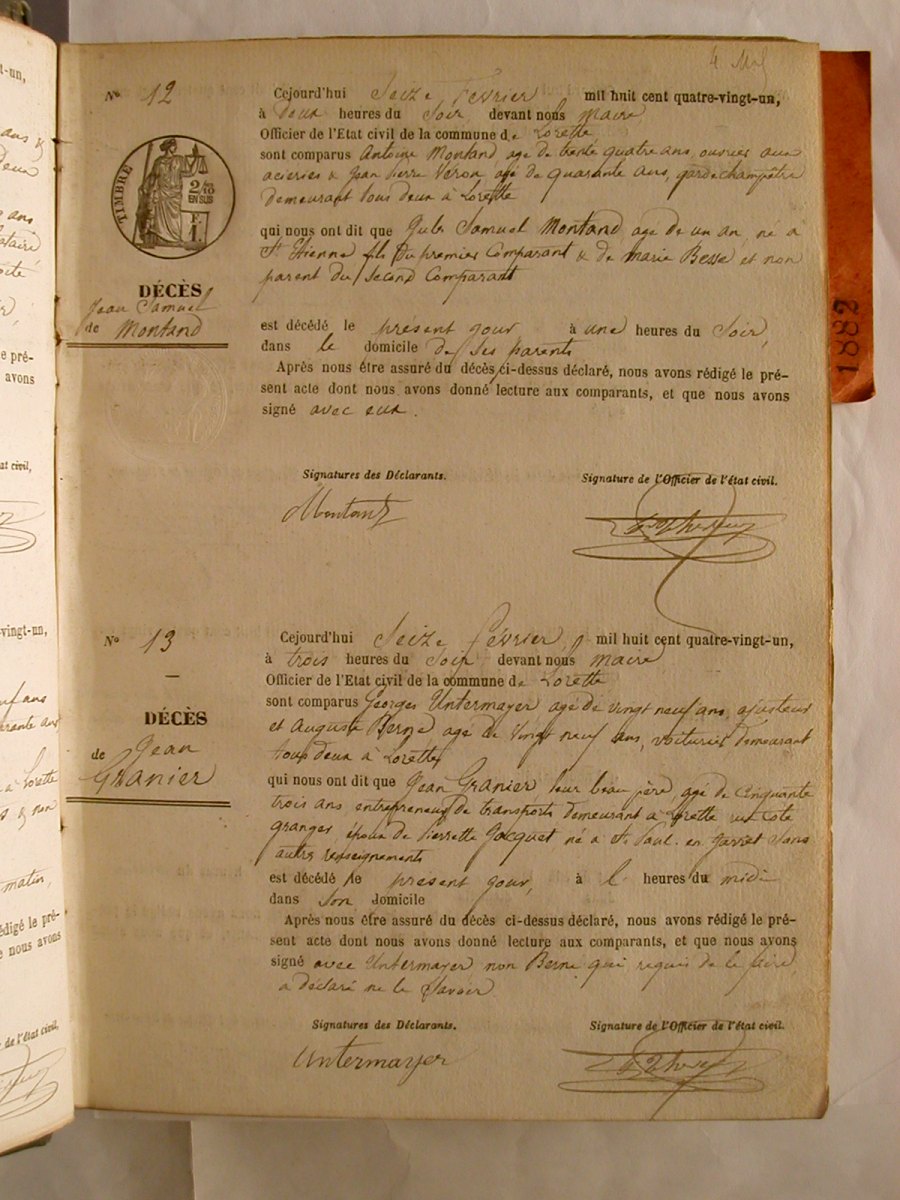 t-un,
ans &
Deux
ans
e pré-
avons
at civil,
-vingt-un,
euf ans
arante ans
à Lorette
s & non
matin,
édigé le pré-
e nous avons
de l'état civil,
No 12
TIMBRE
2/10
EN SUS
DÉCÈS
Jean Samuel
de Montand
Cejourd'hui Seize Février mil huit cent quatre-vingt-un,
à Deux heures du Soir, devant nous Maire
Officier de l'Etat civil de la commune de Lorette
sont comparus Antoine Montand, age de trente quatre ans, ouvrier aux
acieries & Jean Pierre Veron, agé de quarante ans, garde champêtre
demeurant tous deux à Lorette
qui nous ont dit que Jules Samuel Montand, agé de un an, né à
St Etienne fils du premier Comparant & de Marie Besse et non
parent du second Comparant
est décédé le présent jour à une heures du Soir,
dans le domicile de ses parents
Après nous être assuré du décès ci-dessus déclaré, nous avons rédigé le pré-
sent acte dont nous avons donné lecture aux comparants, et que nous avons
signé avec eux.
Signatures des Déclarants. Signature de l'Officier de l'état civil.
Montand
1882
No 13
DÉCÈS
de Jean
Granier
Cejourd'hui Seize Février, mil huit cent quatre-vingt-un,
à trois heures du Soir devant nous Maire
Officier de l'Etat civil de la commune de Lorette
sont comparus Georges Untermayer agé de vingt neuf ans, ajusteur
et Auguste Berne agé de vingt neuf ans, voiturier demeurant
tous deux à Lorette
qui nous ont dit que Jean Granier leur beau père, agé de Cinquante
trois ans entrepreneur de transports demeurant à Lorette rue Cote
granger, époux de Pierrette Jacquet, né à St Paul-en Jarret sans
autres renseignements
est décédé le present jour, à l heures du midi
dans son domicile
Après nous être assuré du décès ci-dessus déclaré, nous avons rédigé le pré-
sent acte dont nous avons donné lecture aux comparants, et que nous avons
signé avec Untermayer non Berne qui requis de le faire,
a déclaré ne le savoir
Signatures des Déclarants. Signature de l'Officier de l'état civil.
Untermayer